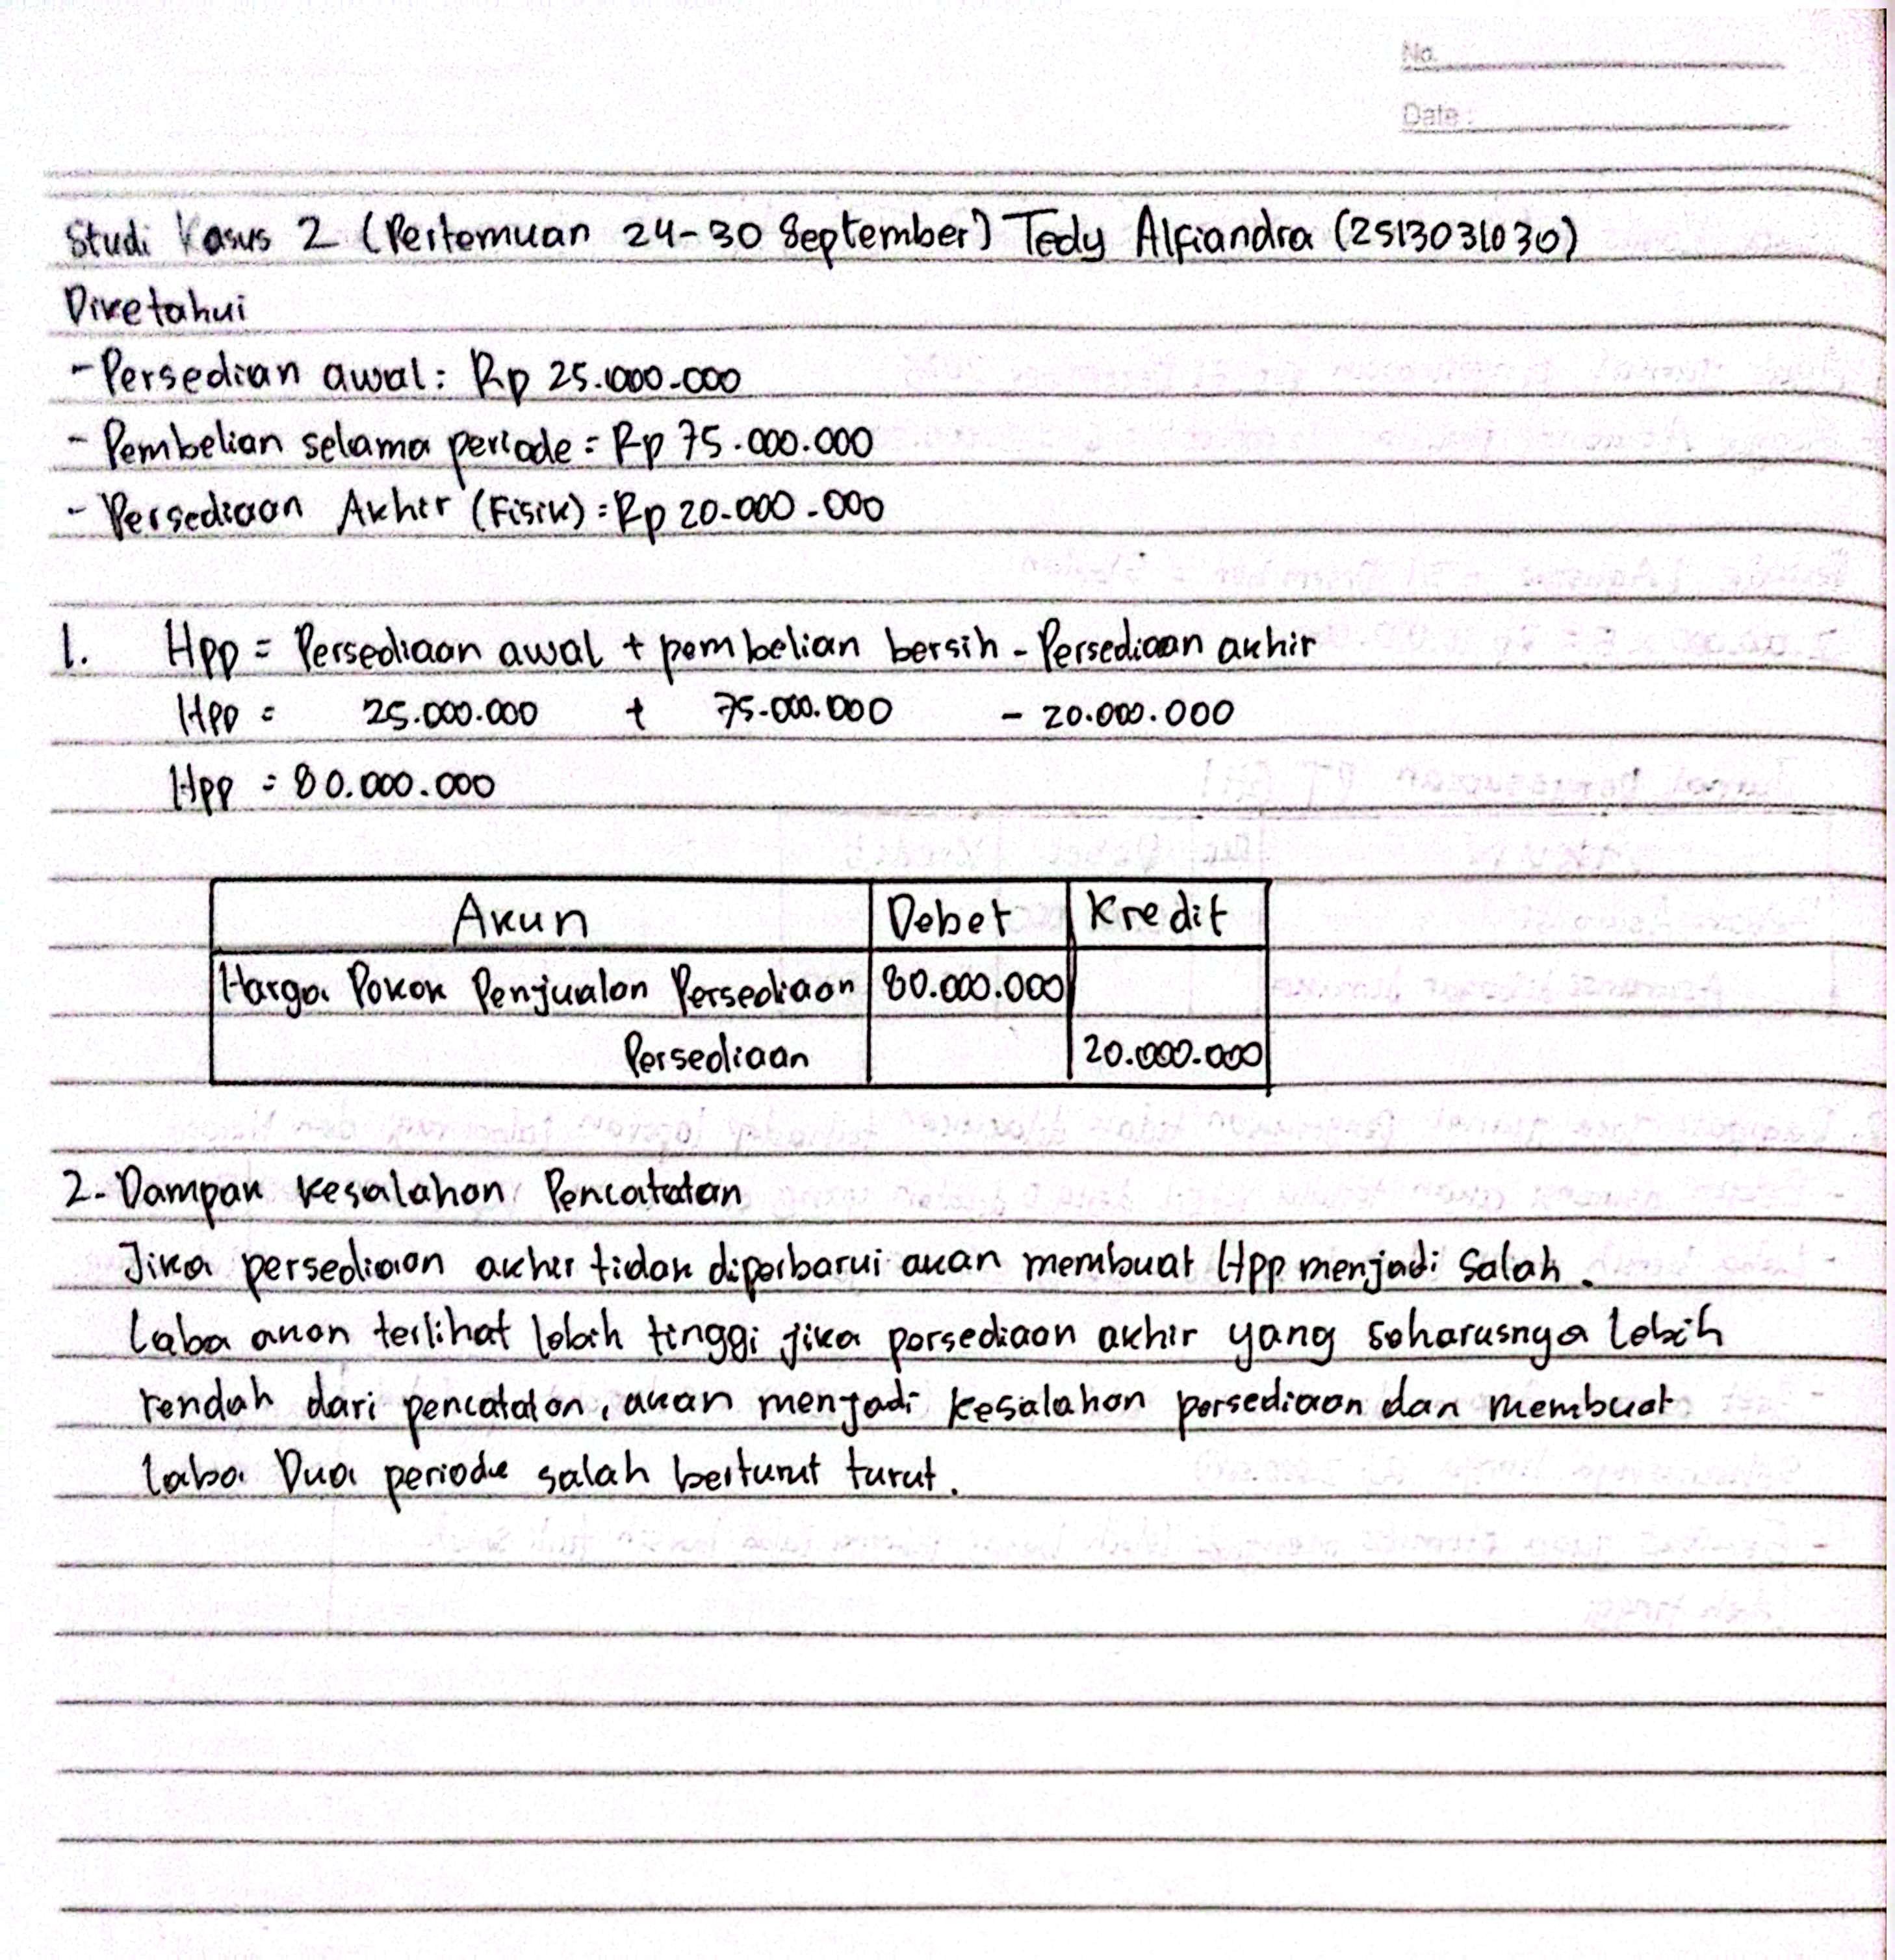 No.
Date :
Studi Kasus 2 (Pertemuan 24-30 September) Tedy Alfiandra (2513031030)
Diketahui
- Persedian awal: Rp 25.000.000
- Pembelian selama periode = Rp 75.000.000
- Persediaan Akhir (Fisik) = Rp 20.000.000
1. Hpp = Persediaan awal + pembelian bersih - Persediaan akhir
Hpp = 25.000.000 + 75.000.000 - 20.000.000
Hpp = 80.000.000
Akun Debet Kredit
Harga Pokok Penjualan Persediaan 80.000.000
Persediaan 20.000.000
2. Dampak Kesalahan Pencatatan
Jika persediaan akhir tidak diperbarui akan membuat Hpp menjadi salah.
Laba akan terlihat lebih tinggi jika persediaan akhir yang seharusnya lebih
rendah dari pencatatan, akan menjadi kesalahan persediaan dan membuat
laba Dua periode salah berturut turut.